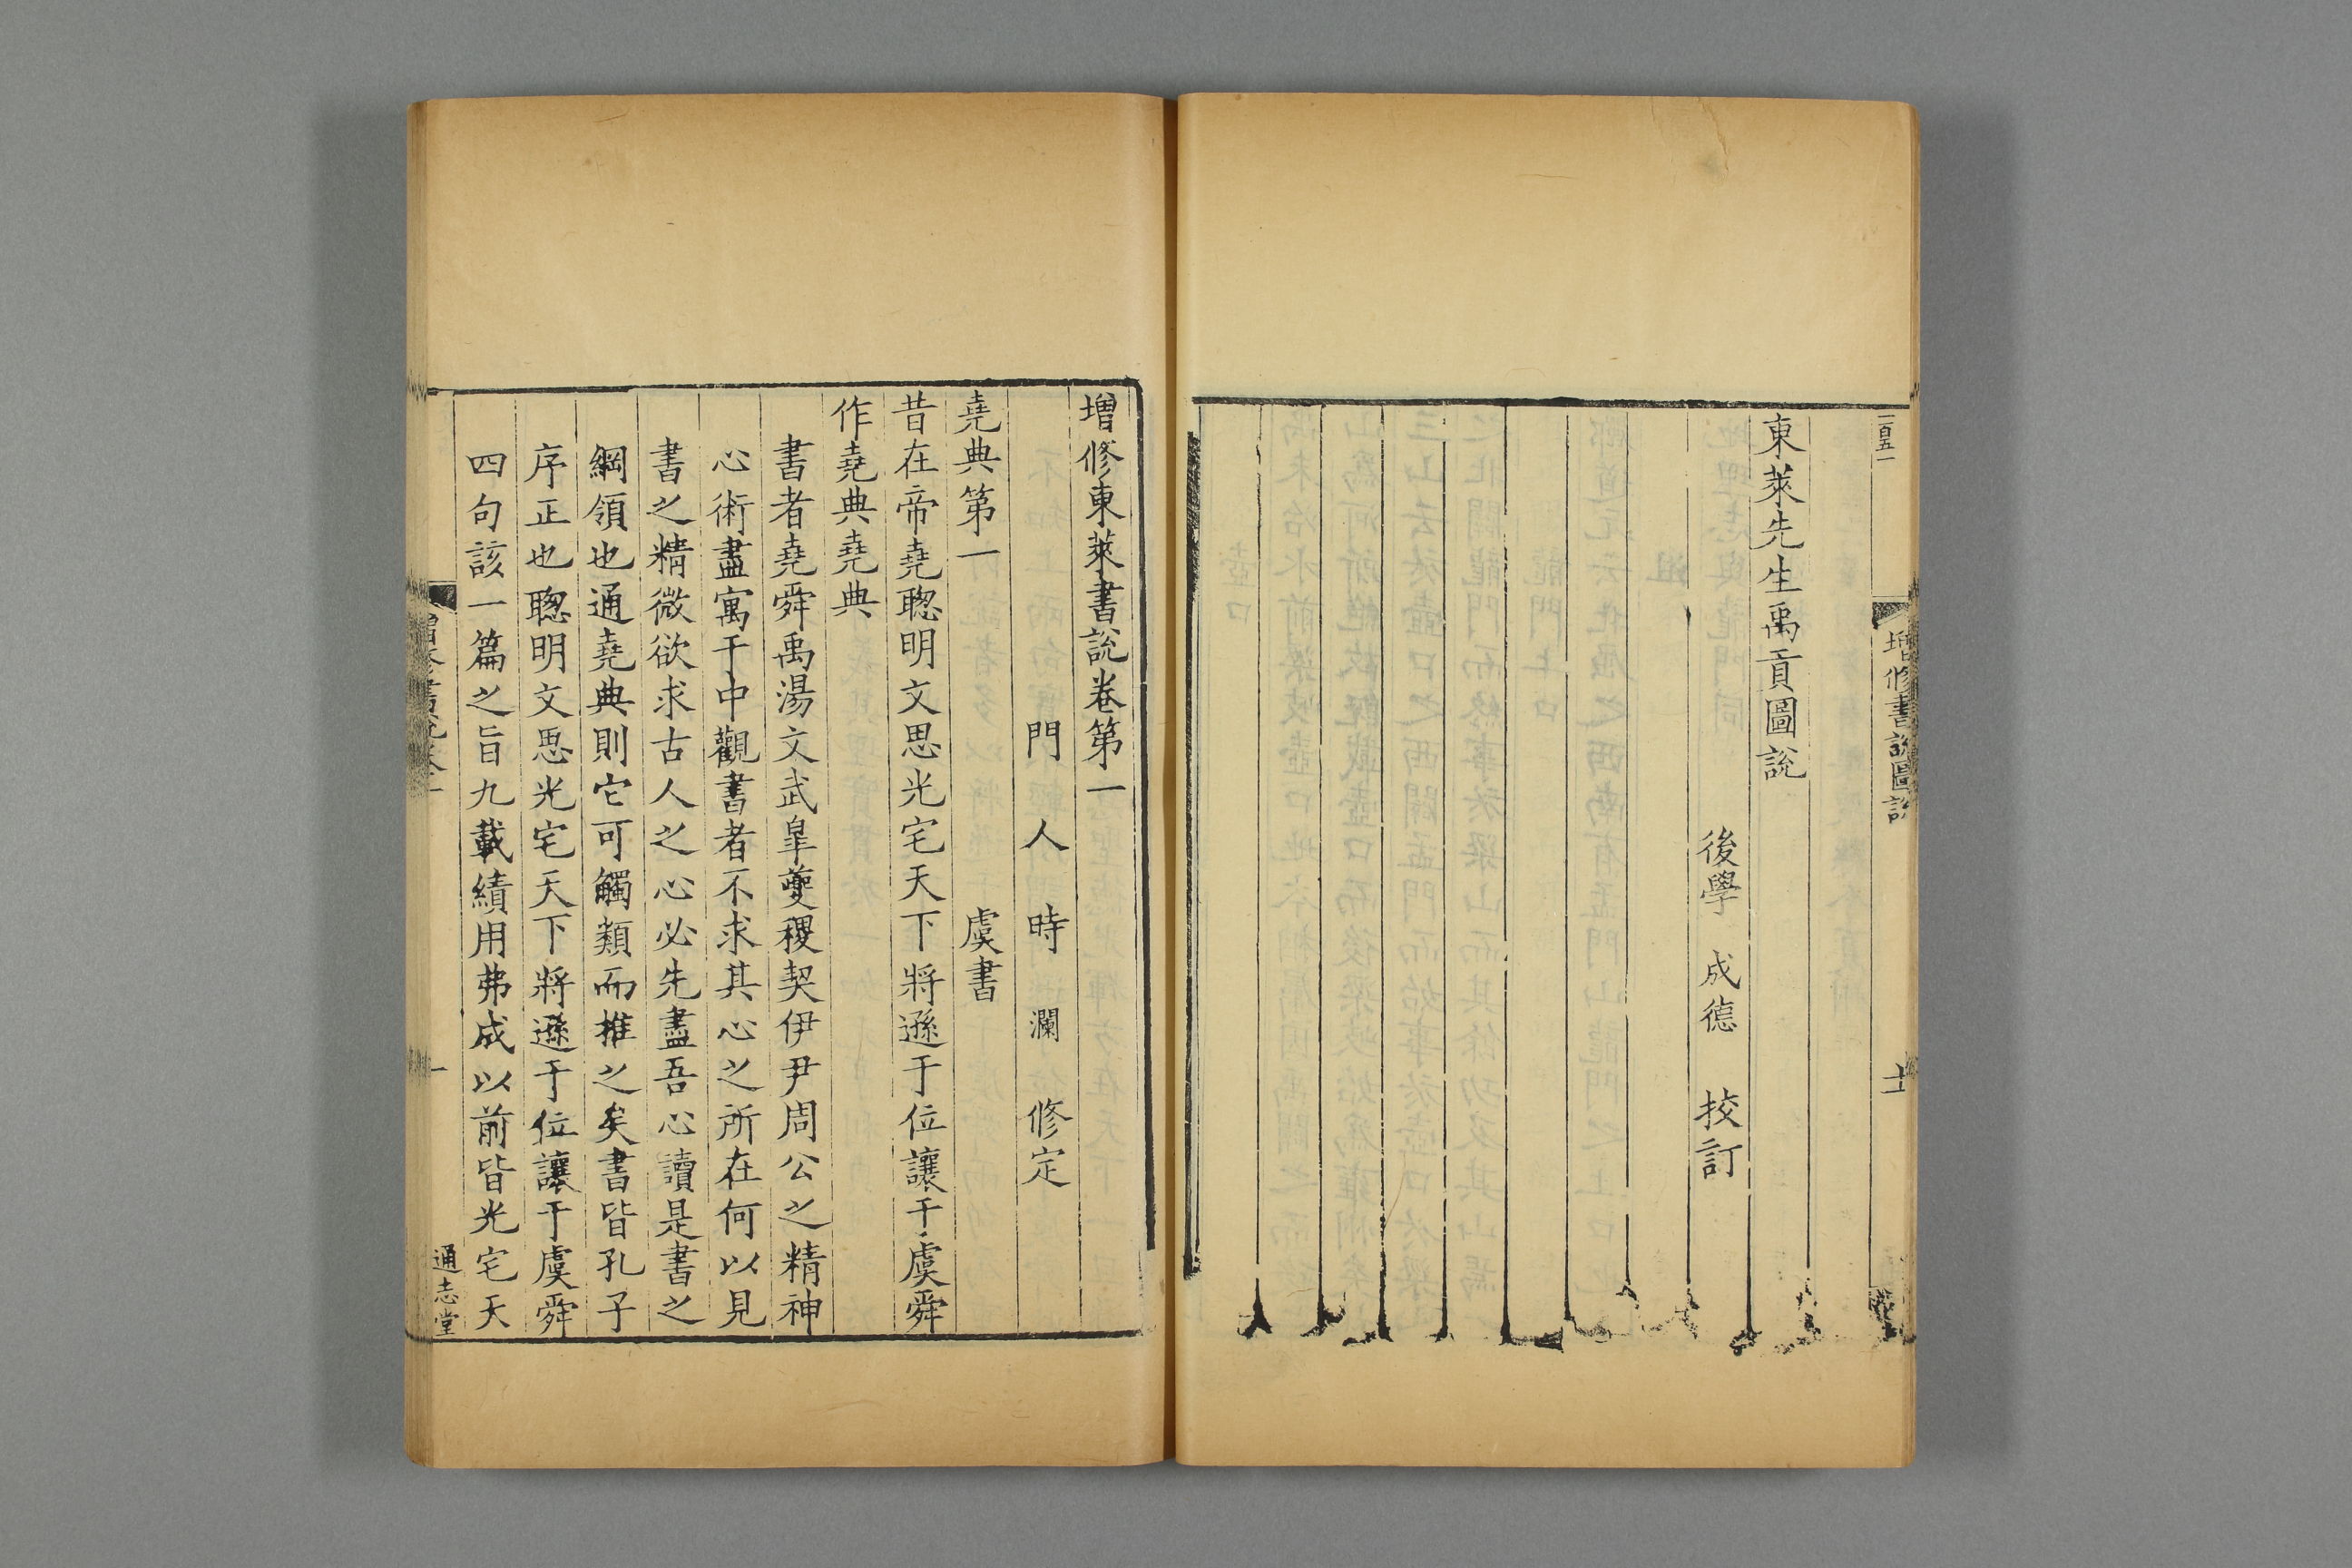 一百五一
增修書說圖說
十一
東萊先生禹貢圖說
後學 成德 挍訂
增修東萊書說卷第一
門人時瀾修定
堯典第一 虞書
昔在帝堯聦明文思光宅天下將遜于位讓于虞舜
作堯典堯典
書者堯舜禹湯文武皐夔稷契伊尹周公之精神
心術盡寓于中觀書者不求其心之所在何以見
書之精微欲求古人之心必先盡吾心讀是書之
綱領也通堯典則它可觸類而推之矣書皆孔子
序正也聦明文思光宅天下將遜于位讓于虞舜
四句該一篇之旨九載績用弗成以前皆光宅天
增修書說卷一
一
通志堂